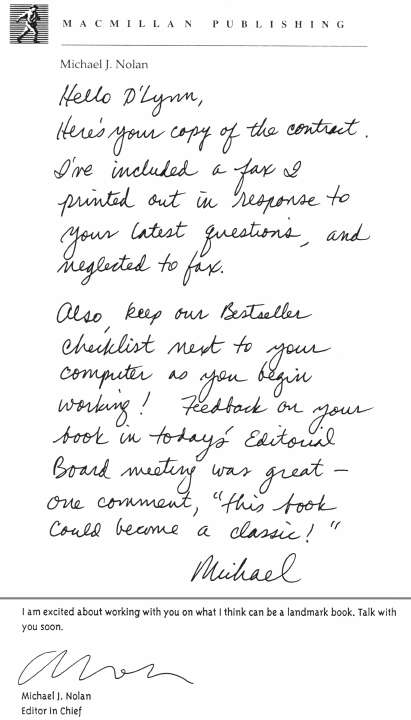 MACMILLAN PUBLISHING
Michael J. Nolan
Hello D'Lynn,
Here's your copy of the contract.
I've included a fax I
printed out in response to
your latest questions, and
neglected to fax.
Also, keep our Bestseller
Checklist next to your
computer as you begin
working! Feedback on your
book in today's Editorial
Board meeting was great –
one comment, "this book
could become a classic!"
Michael
I am excited about working with you on what I think can be a landmark book. Talk with
you soon.
Michael J. Nolan
Editor in Chief